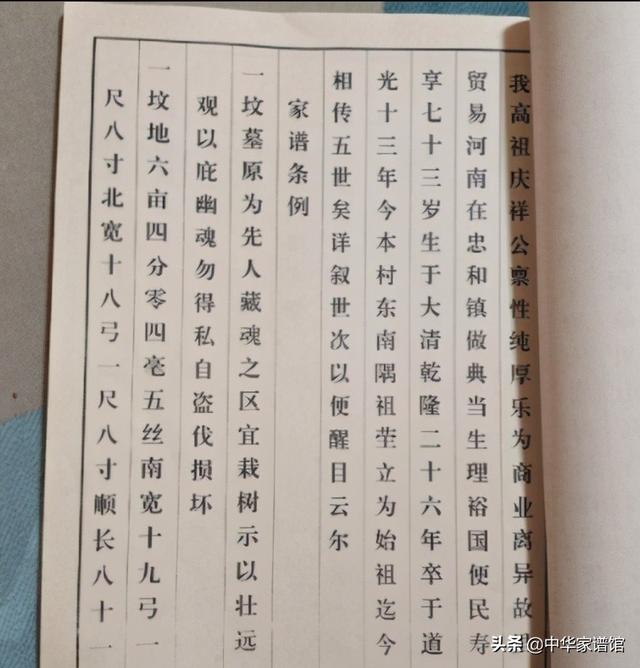 我高祖庆祥公禀性纯厚乐为商业离异故
贸易河南在忠和镇做典当生理裕国便民寿
享七十三岁生于大清乾隆二十六年卒于道
光十三年今本村东南隅祖茔立为始祖迄今
相传五世矣详叙世次以便醒目云尔
家谱条例
一坟墓原为先人藏魂之区宜栽树示以壮远
观以庇幽魂勿得私自盗伐损坏
一坟地六亩四分零四毫五丝南宽十九弓一
尺八寸北宽十八弓一尺八寸顺长八十一
头条@中华家谱馆